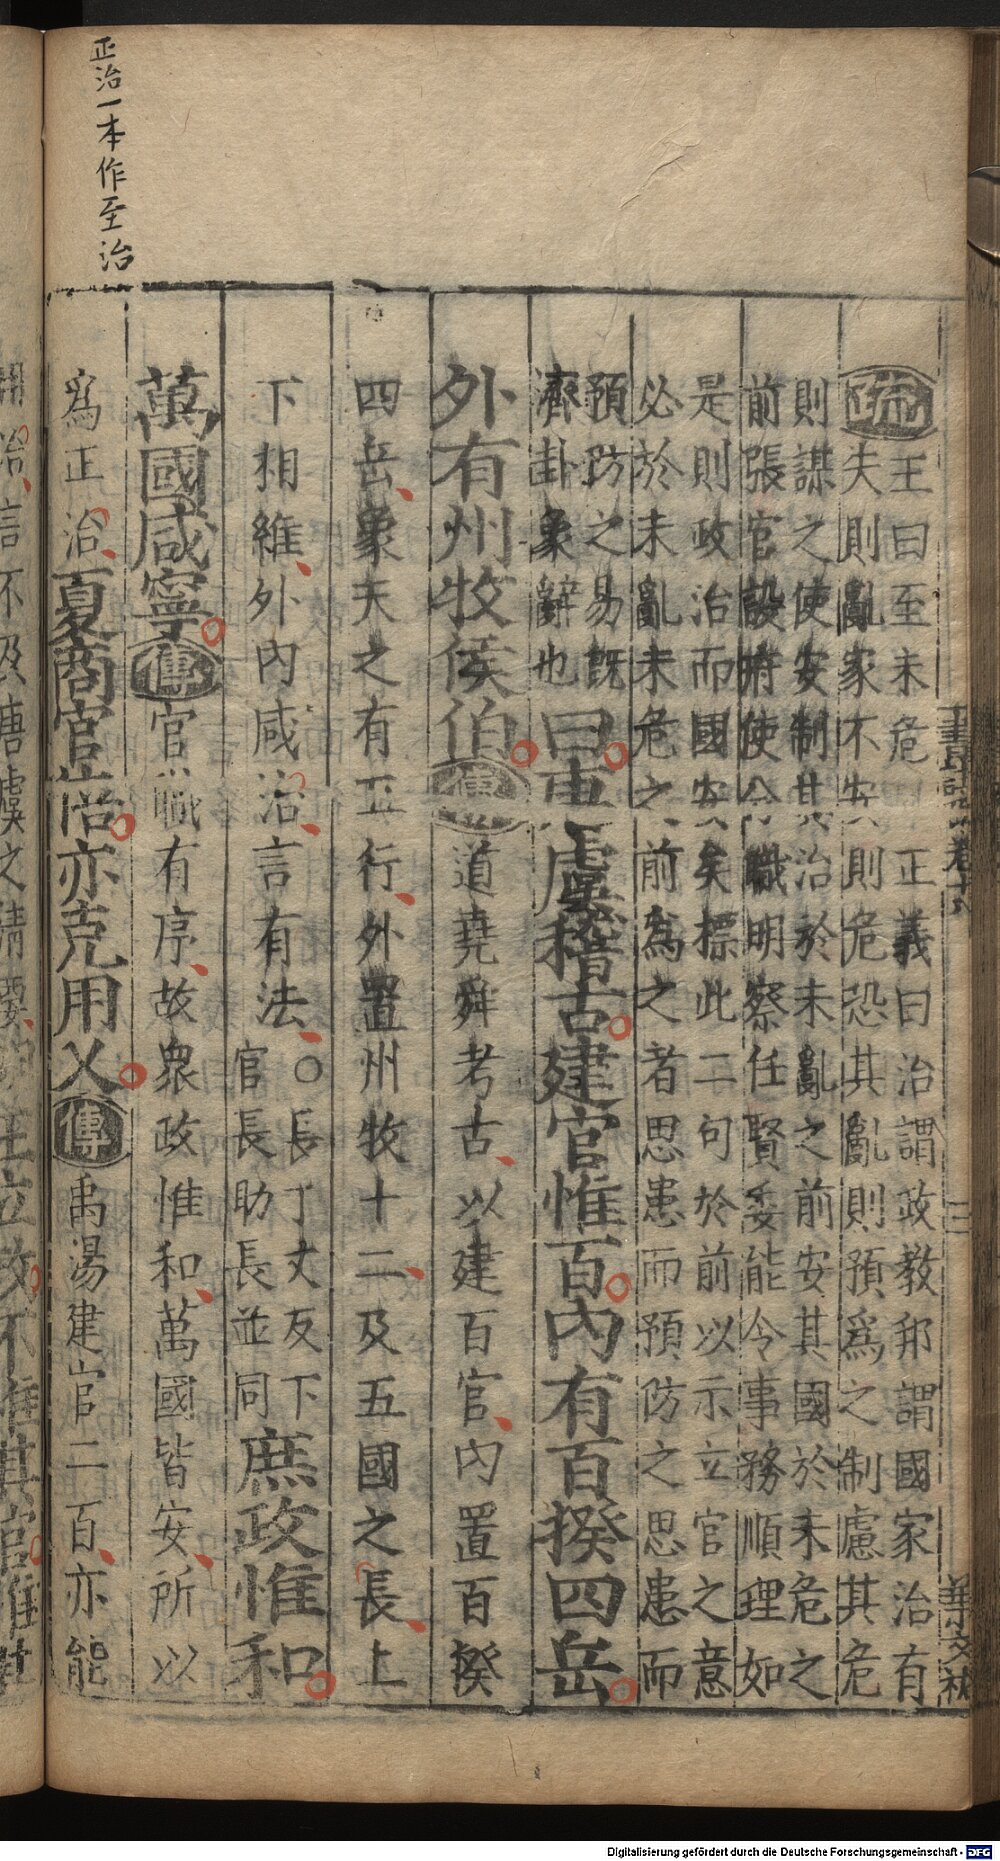 正治一本作至治
疏王曰至未危 正義曰治謂政教邦謂國家治有
夫則亂家不安則危恐其亂則預爲之制慮其危
則謀之使安制其治於未亂之前安其國於未危之
前張官設府使分職明察任賢委能令事務順理如
是則政治而國安矣標此二句於前以示立官之意
必於未亂未危之前爲之者思患而預防之思患而
預防之易既
濟卦象辭也曰唐虞稽古建官惟百內有百揆四岳
外有州牧侯伯傳道堯舜考古以建百官內置百揆
四岳象天之有五行外置州牧十二及五國之長上
下相維外內咸治言有法○長丁丈反下
官長助長並同庶政惟和
萬國咸寧傳官職有序故衆政惟和萬國皆安所以
爲正治夏商官倍亦克用乂傳禹湯建官二百亦能
書卷十八
三
Digitalisierung gefördert durch die Deutsche Forschungsgemeinschaft - DFG